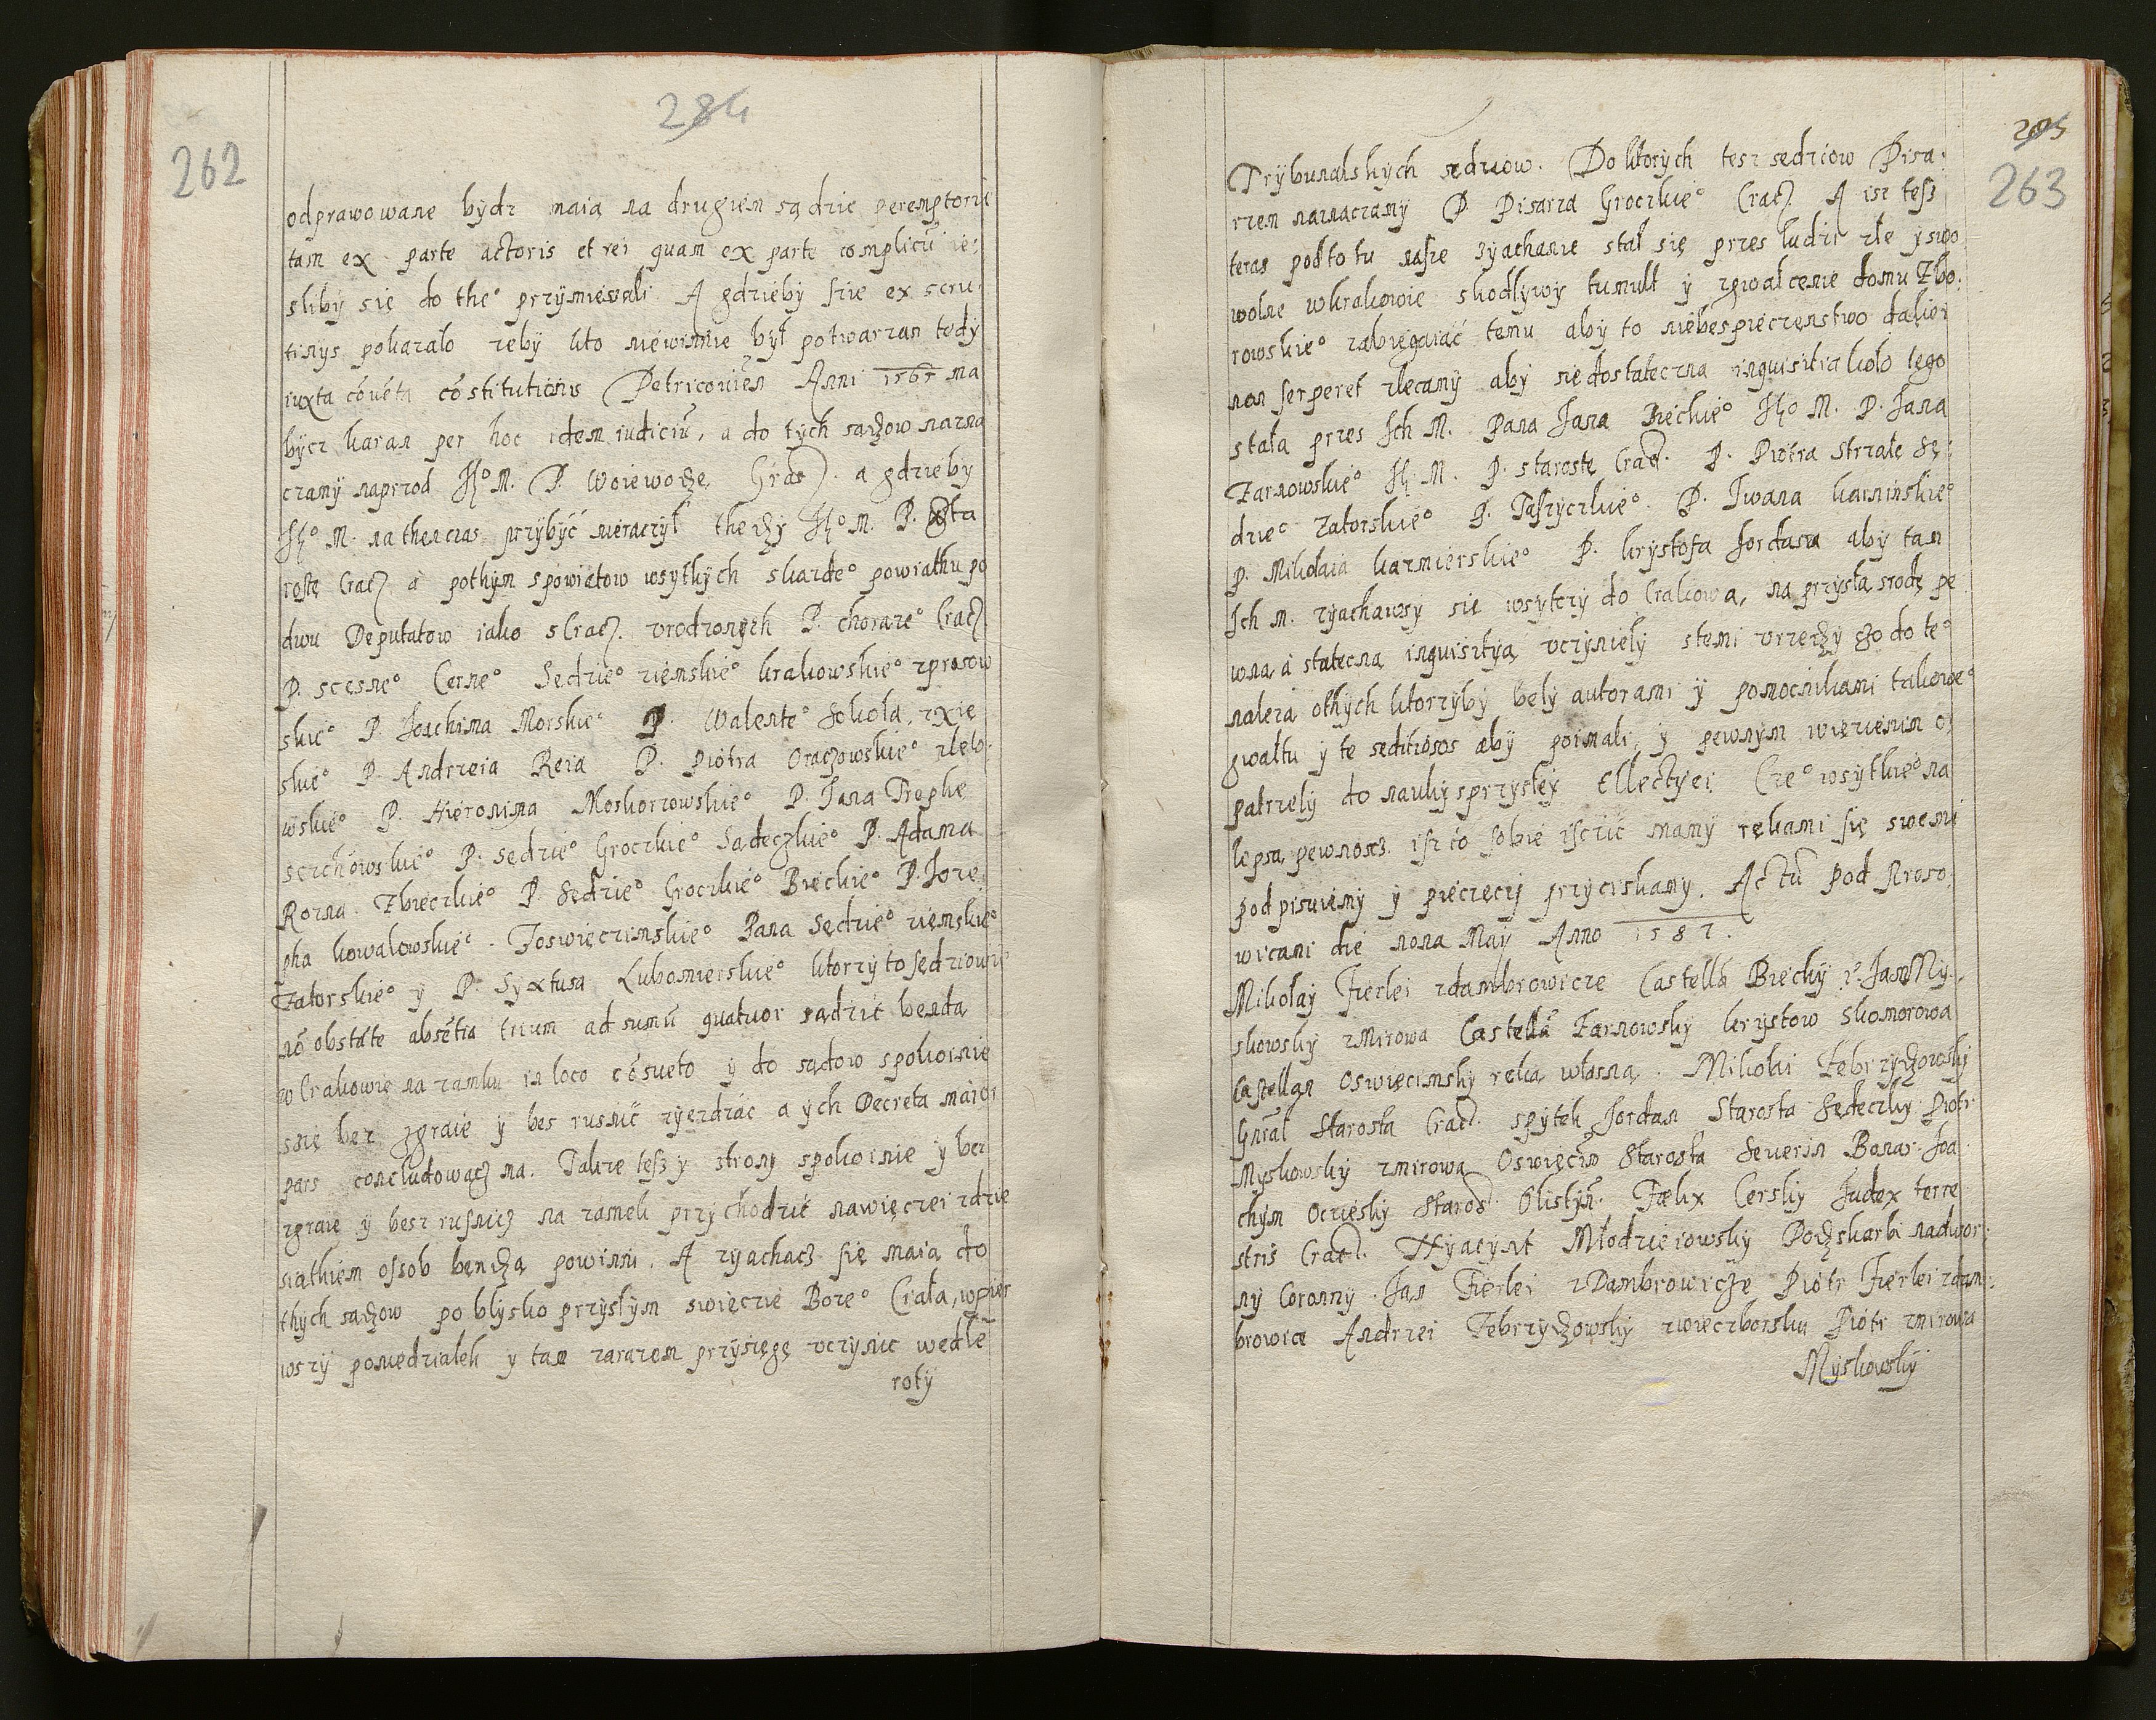 284
262
odprawowane bydz maią na drugiem sądzie peremptorie
tam ex parte actoris et rei quam ex parte complicũ ie:
sliby się do the° przymieszali A gdzieby sie ex scru:
tinys pokazało zeby kto niewinnie był potwarzan tedy
iuxta cõuẽta cõstitutionis Petricouien Anni 1565 ma
bycz karan per hoc idem iudiciũ, a do tych sądzow nazna
czamy naprzod J° M. P. Woiewodę Crac. a gdzieby
J° M. na thenczas przybyć nieraczył thedy J° M. P. Sta
rostę Crac a pothym spowiatow wsytkych skazde° powiathu po
dwu Deputatow iako s Crac. vrodzonych P. choraze° Crac
P. scęsne° Cerne° Sędzie° ziemskie° krakowskie° zprosow
skie° P. Joachima Morskie° P. Walente° Sokola, zxię
skie° P. Andrzeia Reia P. Piotra Oraczowskie° zleb
wskie° P. Hieronima Moskorzowskie° P. Jana Prephe
serchowskie° P. Sędzie° Groczkie° Sądeczkie° P. Adama
Rozna Zbieczkie° P. Sędzie° Groczkie° Bieckie° P. Joze
pha kowalowskie°. Zoswięczimskie° Pana Sędzie° ziemskie°
Zatorskie° y P. Syxtusa Lubomierskie° ktorzy to sędziowie
nõ obstãte absẽtia trium ad sumũ quatuor sądzić będą
w Crakowie na zamku in loco cõsueto y do sądow spokoinie
snię bez zgraie y bes rusnić zyezdzać a ych Decreta maior
pars concludowacz ma. Takze tesz y strony spokoinie y bez
zgraie y besz rusnicz na zamek przychodzić nawięczei zdzie
siathiem ossob będzą powinni. A zyachacz się maia do
thych sądzow po blysko przyslym swięczie Boze° Ciała, w pier
wszy poniedziałek y tam zarazem przysięgę vczynic wedle
roty
285
263
Trybunalskych sędziow. Do ktorych tesz sędziow Pisa:
rzem naznaczamy P. Pisarza Groczkie° Crac A isz tesz
teras pod to tu nasze zyachanie stał się przes ludzi złe y swo
wolne w krakowie skodlywy tumult y zgwałcenie domu Zbo:
rowskie° zabięgaiąć temu aby to niebespieczęnstwo daliei
non serperet zlecamy aby się dostateczna inquisitia koło tego
stała przes Ich M. Pana Jana Bieckie° J° M. P. Jana
Zarnowskie° J M. P. starostę Crac. P. Piotra Strzałę Sę:
dzie° Zatorskie° P. Paszyczkie° P. Iwana karninskie°
P. Mikołaia kazmierskie° P. krystofa Jordana aby tam
Ich M. zyachawsy sie wsytczy do Crakowa, na przysłą srodę pe
wną a statecną inquisitya vczyniely stemi vrzędy czo do te°
nalezą othych ktorzyby bely autorami y pomocnikami takowe°
gwałtu y te seditiosos aby poimali, y pewnym więzieniem o
patrzely do nauky sprzysłey Ellectyei Cze° wsytkie° na
lepsą pewnoscz isz co sobie iścić mamy rękami się swemi
pod pisuiemy y pieczęcij przyciskamy. Actũ pod Proso
wicami die nona Maij Anno 1587.
Mikołay Fierlei zdambrowicze Castellã Biecky P. Jan My
skowsky zMirowa Castellã Zarnowsky krystow Skomorowa
Castellan Oswięcimsky ręką własną. Mikołai Zebrzydzowsky
Gnrał Starosta Crac. Spytek Jordan Starosta Sędeczky Piotr
Myskowsky zmirowa Oswięcim Starosta Severin Bonar Joa
chym Ocziesky Staros Olistyñ. Fælix Cersky Judex terre
stris Crac. Hyacynt Młodzieiowsky Podzskarbi nadwor:
ny Coronny. Jan Fierlei zDambrowicze Piotr Fierlei zdam:
browice Andrzei Zebrzydzowsky zwięczborsku Piotr zmirowa
Myskowsky